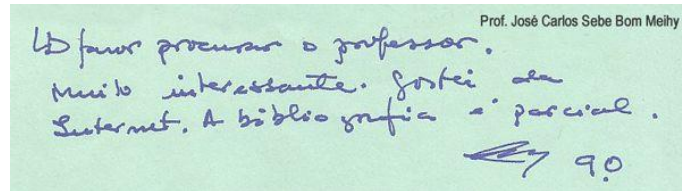 Prof. José Carlos Sebe Bom Meihy
favor procurar o professor.
Muito interessante. Gostei da
Internet. A bibliografia é parcial.
9.0